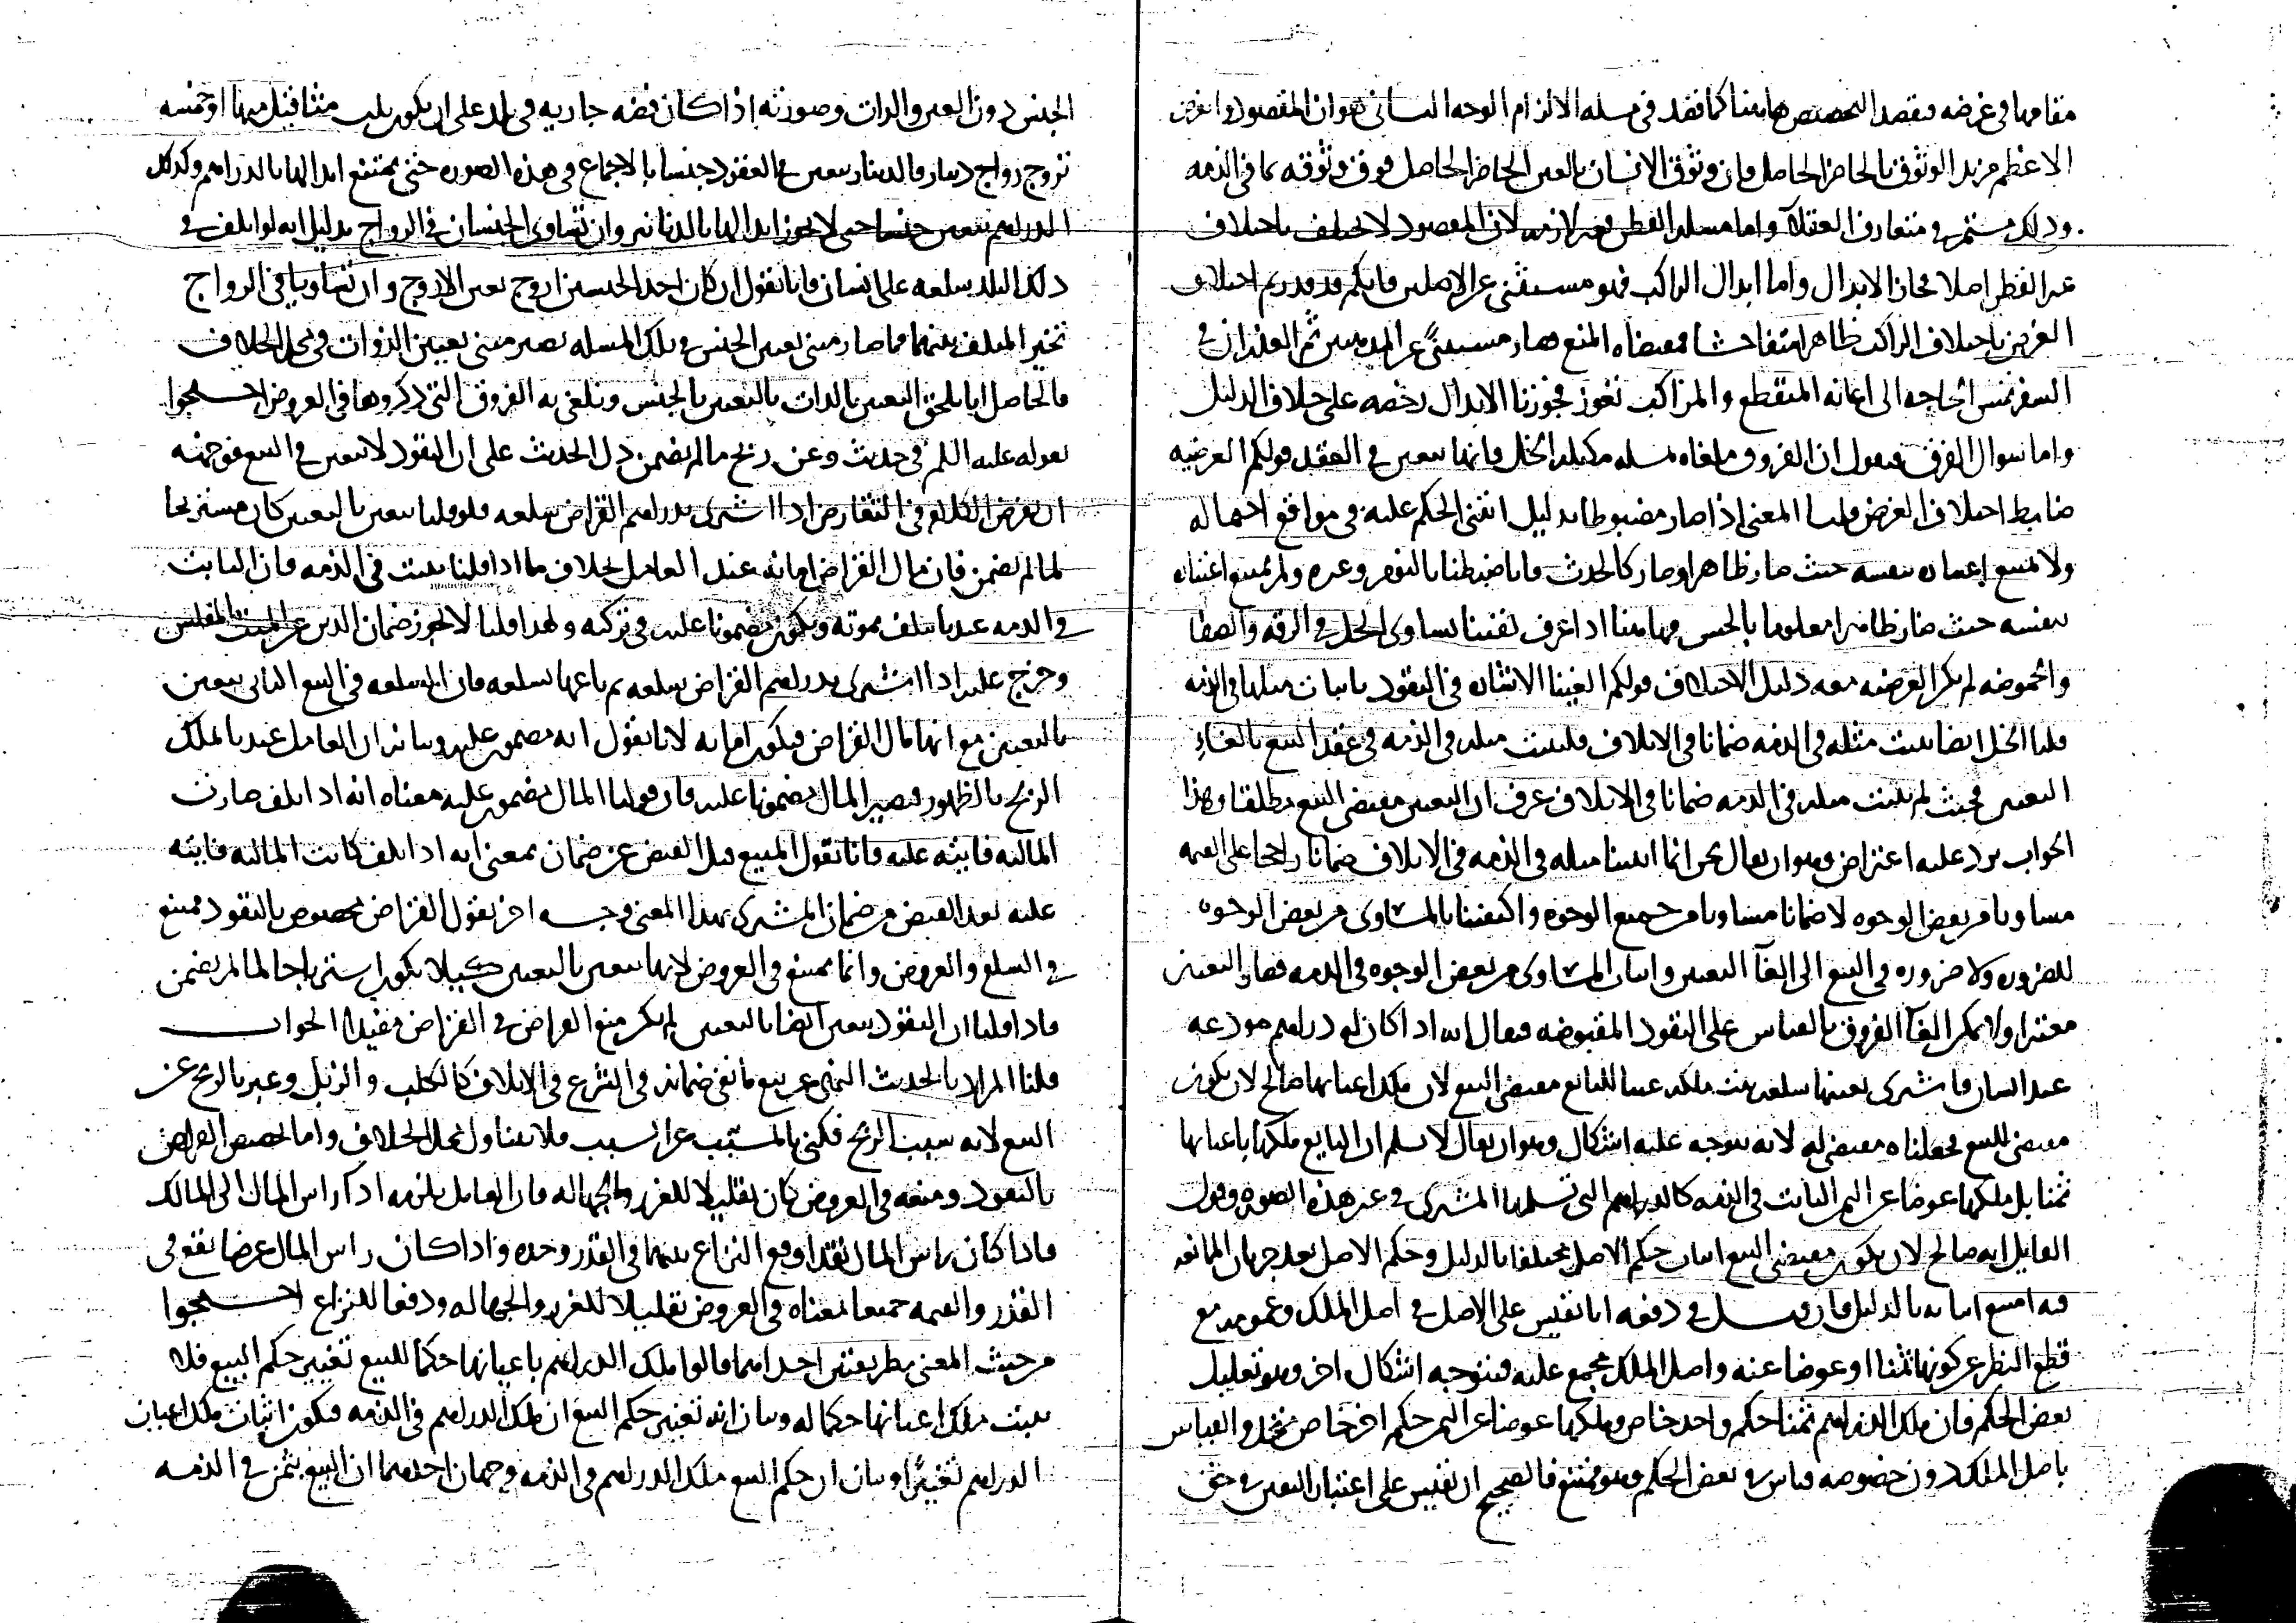 مقامها في غرضه فقصد التخصيص هاهنا كما قصد في مسله الالزام الوجه الثاني هو ان المقصود والغرض
الاعظم مزيد الوثوق بالحاضر الحاصل فان وثوق الانسان بالعين الحاضر الحاصل فوق وثوقه بما في الذمه
وذلك مستمر في متعارف العقلآ واما مسله القطن فغير لازمه لان المقصود لا يختلف باختلاف
القطن اصلا فجاز الابدال واما ابدال الراكب فهو مستثنى عن الاصلين فانكم قدرتم اختلاف
الغرض باختلاف الراكب ظاهرا متفاحشا فمقتضاه المنع فصار مستثنى عن المذهبين ثم العذر ان في
السفر تمس الحاجه الى اعانه المنقطع والمراكب تعوز فجوزنا الابدال رخصه على خلاف الدليل
واما سوال الفرق فنقول ان الفروق ملغاه بمسله مكيله الخل فانها تتعين في العقد قولكم العرضيه
ضابط اختلاف الغرض قلنا المعنى اذا صار مضبوطا بدليل انتفى الحكم عليه في مواقع احتماله
ولا يمتنع اعتباره بنفسه حيث صار ظاهرا وصار كالحدث فانا ضبطناه بالنوم وغيره ولم يمتنع اعتباره
بنفسه حيث صار ظاهرا معلوما بالحس وهاهنا اذا عرف يقينا تساوى الخل في الرقه والصفا
والحموضه لم يكن العرضيه معه دليل الاختلاف قولكم الغينا الاشاره في النقود باثبات مثلها في الذمه
قلنا الخل ايضا يثبت مثله في الذمه ضمانا في الاتلاف فليثبت مثله في الذمه في عقد البيع بالغاء
التعيين فحيث لم يثبت مثله في الذمه ضمانا في الاتلاف عرف ان التعيين مقتضى البيع مطلقا وهذا
الجواب يرد عليه اعتراض وهو ان يقال نحن انما اثبتنا مثله في الذمه في الاتلاف ضمانا راجحا على القيمه
مساويا من بعض الوجوه لا ضمانا مساويا من جميع الوجوه واكتفينا بالمساوى من بعض الوجوه
للضروره ولا ضروره في البيع الى الغآ التعيين واثبات المساوى من بعض الوجوه في الذمه فصار التعيين
معتبرا ولا يمكن الغآ الفروق بالقياس على النقود المقبوضه فيقال انه اذا كان له دراهم مودعه
عند انسان فاشترى بعينها سلعه يثبت ملكه عينا للبايع مقتضى البيع لان ملك اعيانها صالح لان يكون
مقتضى للبيع فجعلناه مقتضى له لانه يتوجه عليه اشكال وهو ان يقال لا نسلم ان البايع ملكها باعيانها
ثمنا بل ملكها عوضا عن الثمن الثابت في الذمه كالدراهم التي تسلمها المشترى في غير هذه الصوره وقول
القايل انه صالح لان يكون مقتضى البيع اثبات حكم الاصل مختلفا بالدليل وحكم الاصل بعد جريان الممانعه
فيه امتنع اثباته بالدليل فان قيل في دفعه انا نقيس على الاصل في اصل الملك وعمومه مع
قطع النظر عن كونها ثمنا او عوضا عنه واصل الملك مجمع عليه فيتوجه اشكال اخر وهو تعليل
بعض الحكم فان ملك الدراهم ثمنا حكم واحد خاص وملكها عوضا عن الثمن حكم اخر خاص متحد والقياس
باصل الملك دون خصوصه قياس في بعض الحكم وهو ممتنع فالصحيح ان نقيس على اعتبار التعين في حق
الجنس دون العين والذات وصورته اذا كان فضه جاريه في بلد على ان يكون ثلث مثاقيل منها او خمسه
تروج رواج دينار فالدينار يتعين في العقد جنسا بالاجماع في هذه الصوره حتى يمتنع ابدالها بالدراهم وكذلك
الدراهم تتعين جنسا حتى لا يجوز ابدالها بالدنانير وان تساوى الجنسان في الرواج بدليل انه لو اتلف في
ذلك البلد سلعه على انسان فانا نقول ان كان احد الجنسين اروج تعين الاروج وان تساويا في الرواج
تخير المتلف بينهما فما صار مبنى تعين الجنس في تلك المسله نصير مبنى تعيين الذوات في محل الخلاف
فالحاصل انا نلحق التعيين بالذات بالتعيين بالجنس ونلغي به الفروق التي ذكروها في العروض احتجوا
بقوله عليه السلم في حديث وعن ربح ما لم يضمن دل الحديث على ان النقود لا تتعين في البيع فوجهه
ان نفرض الكلام في التقارض اذا اشترى بدراهم القراض سلعه فلو قلنا تتعين بالتعيين كان مستربحا
لما لم يضمن فان مال القراض امانه عند العامل بخلاف ما اذا قلنا يثبت في الذمه فان الثابت
في الذمه عندنا يتلف بموته ويكون مضمونا عليه في تركته ولهذا قلنا لا يجوز ضمان الدين عن الميت المفلس
وخرج عليه اذا اشترى بدراهم القراض سلعه ثم باعها بسلعه فان السلعه في البيع الثاني تتعين
بالتعيين مع انها مال القراض فيكون امانه لانا نقول انه مضمون عليه وبيانه ان العامل عندنا يملك
الربح بالظهور فيصير المال مضمونا عليه فان قولنا المال مضمون عليه معناه انه اذا تلف صارت
الماليه فايته عليه فانا نقول المبيع قبل القبض عن ضمان بمعنى انه اذا تلف كانت الماليه فايته
عليه بعد القبض من ضمان المشترى بهذا المعنى وجه اخر نقول القراض مخصوص بالنقود ممتنع
في السلع والعروض وانما يمتنع في العروض لانها تتعين بالتعيين كيلا يكون استرباحا لما لم يضمن
فاذا قلنا ان النقود تتعين ايضا بالتعيين لم يكن منع العراض في القراض مفيدا الجواب
قلنا المراد بالحديث النهي عن بيع ما نفى ضمانه في الشرع في الاتلاف كالكلب والزبل وعبر بالربح عن
البيع لانه سبب الربح فكنى بالمسبب عن السبب فلا يتناول محل الخلاف واما تخصص القراض
بالنقود ومنعه في العروض كان تقليلا للغرر والجهاله فان العامل يلزمه ادآ راس المال الى المالك
فاذا كان راس المال نقدا وقع النزاع بينهما في القدر وحده واذا كان راس المال عرضا يقع في
القدر والقيمه جميعا فمنعناه في العروض تقليلا للغرر والجهاله ودفعا للنزاع احتجوا
من حيث المعنى بطريقتين احداهما قالوا ملك الدراهم باعيانها حكما للبيع تغيير حكم البيع فلا
يثبت ملك اعيانها حكما له وبيان انه تغيير حكم البيع ان ملك الدراهم في الذمه فيكون اثبات ملك اعيان
الدراهم تغييرا وبيان ان حكم البيع ملك الدراهم في الذمه وجهان احدهما ان البيع بثمن في الذمه